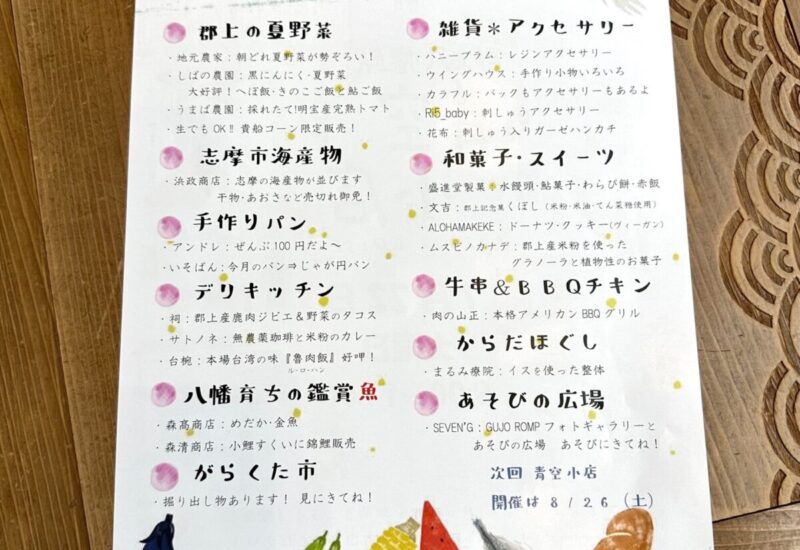 郡上の夏野菜
・地元農家：朝どれ夏野菜が勢ぞろい！
・しばの農園：黒にんにく・夏野菜
大好評！へぼ飯・きのこご飯と鮎ご飯
・うまば農園：採れたて!明宝産完熟トマト
・生でもOK!! 貴船コーン限定販売！
志摩市海産物
・浜政商店：志摩の海産物が並びます
干物・あおさなど売切れ御免！
手作りパン
・アンドレ：ぜんぶ100円だよ～
・いそぱん：今月のパン⇒じゃが円パン
デリキッチン
・祠：郡上産鹿肉ジビエ＆野菜のタコス
・サトノネ：無農薬珈琲と米粉のカレー
・台椀：本場台湾の味『魯肉飯』好呷！
ル・ロ・ハン
八幡育ちの鑑賞魚
・森高商店：めだか・金魚
・森清商店：小鯉すくいに錦鯉販売
がらくた市
・掘り出し物あります！ 見にきてね！
雑貨＊アクセサリー
・ハニープラム：レジンアクセサリー
・ウイングハウス：手作り小物いろいろ
・カラフル：バックもアクセサリーもあるよ
・Ri5_baby：刺しゅうアクセサリー
・花布：刺しゅう入りガーゼハンカチ
和菓子・スイーツ
・盛進堂製菓：水饅頭・鮎菓子・わらび餅・赤飯
・文吉：郡上記念菓くぼし（米粉・米油・てん菜糖使用）
・ALOHAMAKEKE：ドーナツ・クッキー(ヴィーガン)
・ムスビノカナデ：郡上産米粉を使った
グラノーラと植物性のお菓子
牛串＆BBQチキン
・肉の山正：本格アメリカンBBQグリル
からだほぐし
・まるみ療院：イスを使った整体
あそびの広場
・SEVEN°G：GUJO ROMPフォトギャラリーと
あそびの広場 あそびにきてね！
次回 青空小店
開催は 8/26（土）